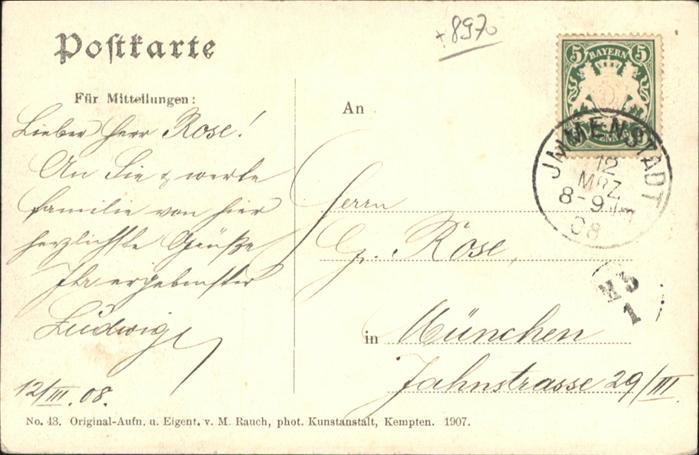 +8970
Postkarte
Für Mitteilungen:
Lieber Herr Rose!
An Sie & werte
Familie von hier
herzlichste Grüße
Ihr ergebenster
Ludwig
12/III. 08.
An
Herrn
G. Rose,
in München
Jahnstrasse 29/III
5 BAYERN 5
JMMENSTADT
12
MRZ
8-9
08
M5
1
No. 43. Original-Aufn. u. Eigent. v. M. Rauch, phot. Kunstanstalt, Kempten. 1907.